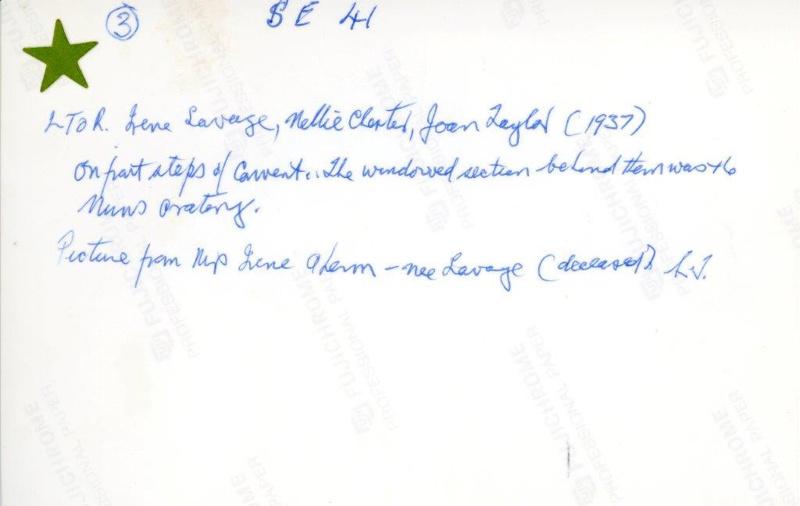 3 SE 41
L TO R. Irene Savage, Nellie Charter, Joan Taylor (1937)
On front steps of Convent.. The windowed section behind them was the
Nuns oratory.
Picture from Mrs Irene - nee Savage (deceased) L.J.
FUJICHROME
PROFESSIONAL PAPER